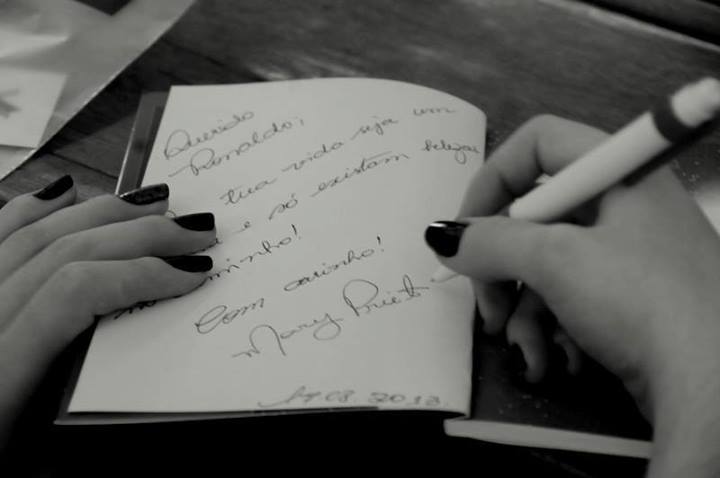 Querido
Ronaldo,
tua vida seja um
e só existam belezas
minho!
Com carinho!
Mary Prieto
17.08.2013.